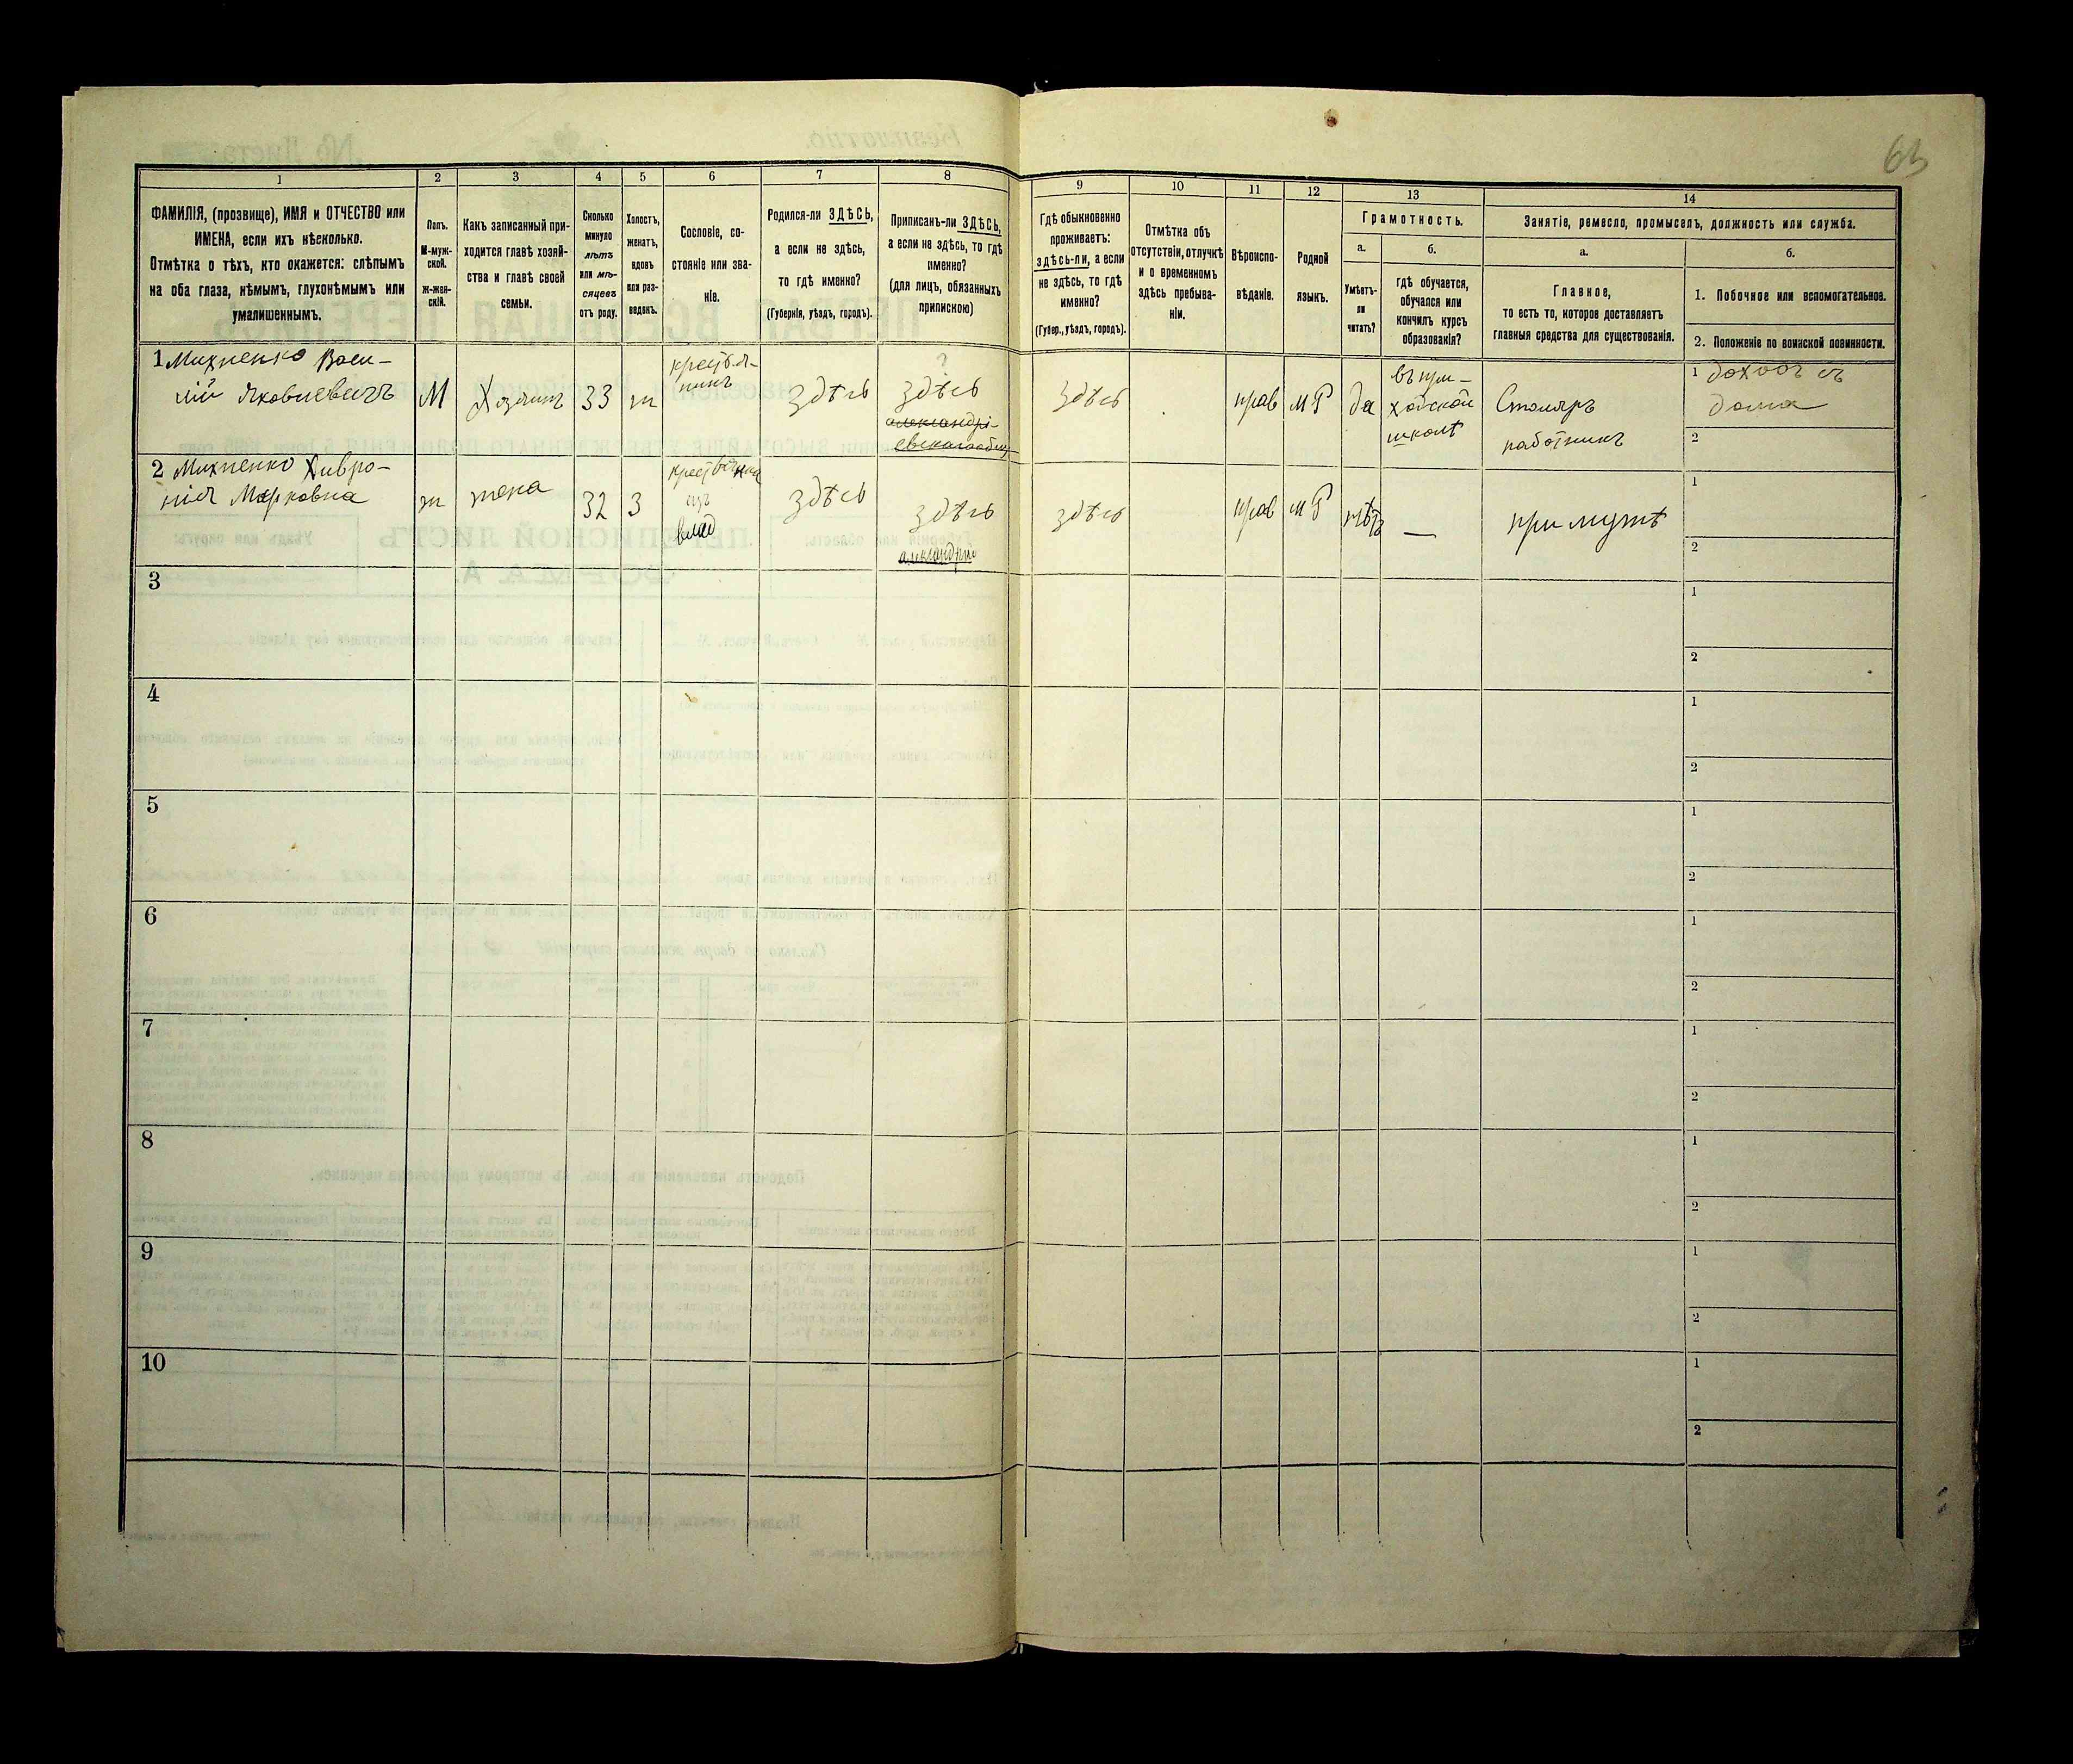 63
1 2 3 4 5 6 7 8 9 10 11 12 13 14
ФАМИЛІЯ, (прозвище), ИМЯ и ОТЧЕСТВО или
ИМЕНА, если ихъ нѣсколько.
Отмѣтка о тѣхъ, кто окажется: слѣпымъ
на оба глаза, нѣмымъ, глухонѣмымъ или
умалишеннымъ.
Полъ.
М-муж-
ской.
ж-жен-
скій.
Какъ записанный при-
ходится главѣ хозяй-
ства и главѣ своей
семьи.
Сколько
минуло
лѣтъ
или мѣ-
сяцевъ
отъ роду.
Холостъ,
женатъ,
вдовъ
или раз-
веденъ.
Сословіе, со-
стояніе или зва-
ніе.
Родился-ли ЗДѢСЬ,
а если не здѣсь,
то гдѣ именно?
(Губернія, уѣздъ, городъ).
Приписанъ-ли ЗДѢСЬ,
а если не здѣсь, то гдѣ
именно?
(для лицъ, обязанныхъ
припискою)
Гдѣ обыкновенно
проживаетъ:
здѣсь-ли, а если
не здѣсь, то гдѣ
именно?
(Губер., уѣздъ, городъ).
Отмѣтка объ
отсутствіи, отлучкѣ
и о временномъ
здѣсь пребыва-
ніи.
Вѣроиспо-
вѣданіе.
Родной
языкъ.
Грамотность.
а.
Умѣетъ-
ли
читать?
б.
гдѣ обучается,
обучался или
кончилъ курсъ
образованія?
Занятіе, ремесло, промыселъ, должность или служба.
а.
Главное,
то есть то, которое доставляетъ
главныя средства для существованія.
б.
1. Побочное или вспомогательное.
2. Положеніе по воинской повинности.
1 Михненко Васи-
лій Яковлевичъ
М
Хозяинъ
33
ж
крестья-
нинъ
здѣсь
?
здѣсь
александрі-
здѣсь
прав
МР
да
въ при-
ходской
школѣ
Столяръ
работникъ
1 доходъ съ
дома
2
2 Михненко Хивро-
нія Марковна
ж
жена
32
З
изъ
влад
здѣсь
здѣсь
здѣсь
прав
МР
нѣтъ
—
при мужѣ
1
2
3
1
2
4
1
2
5
1
2
6
1
2
7
1
2
8
1
2
9
1
2
10
1
2